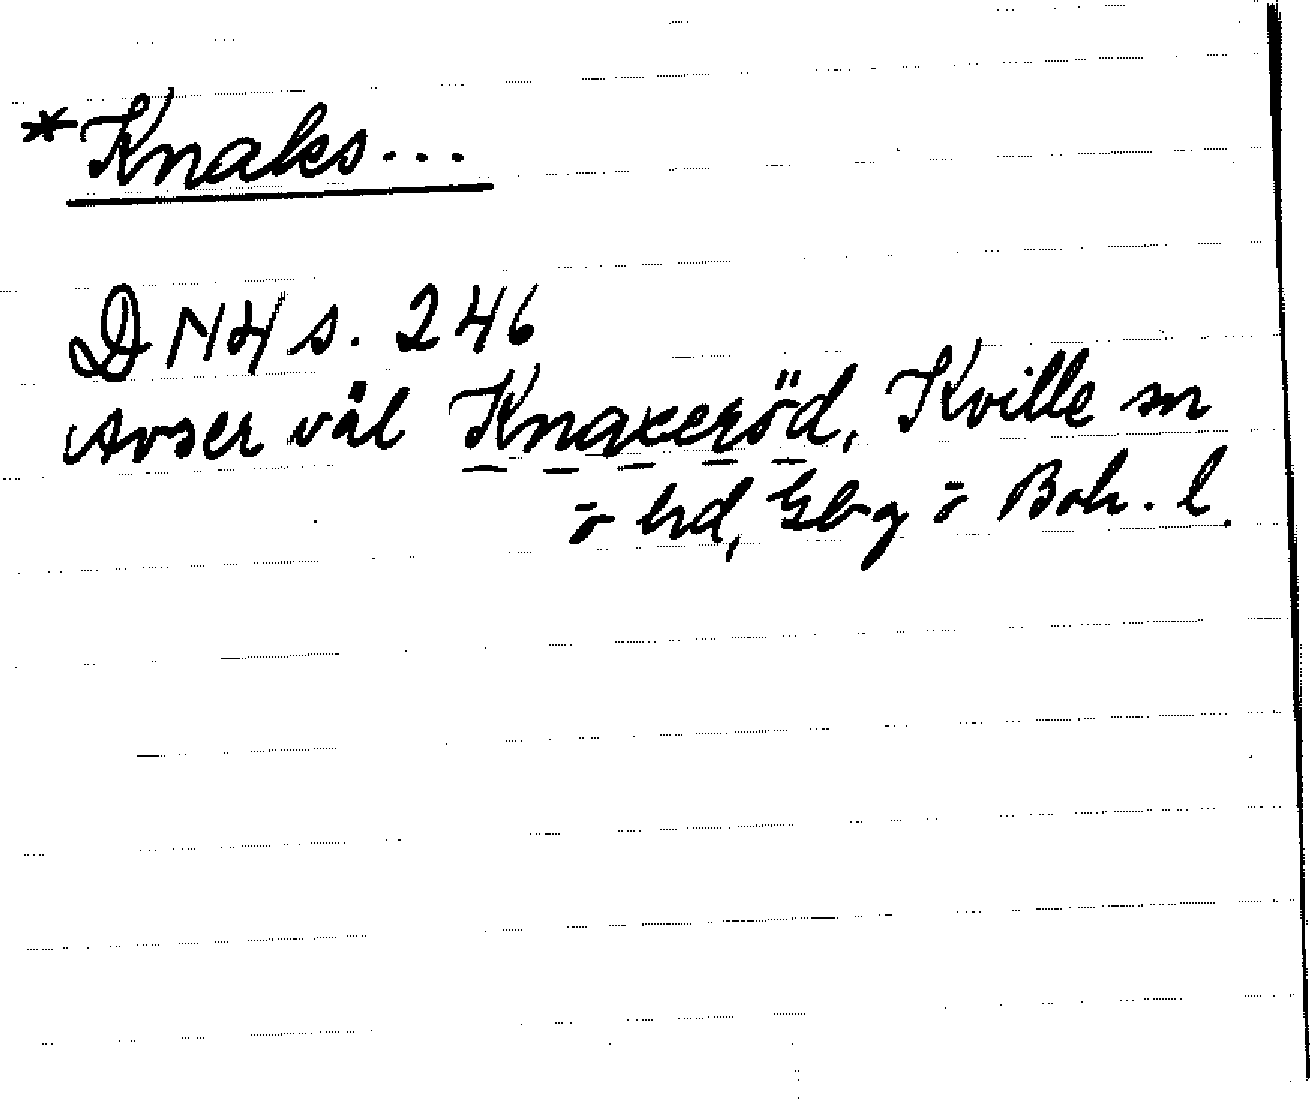 *Knaks...
DN4 s. 246
Avser väl Knaxeröd, Kville sn
o hd, Gbg o Boh. l.